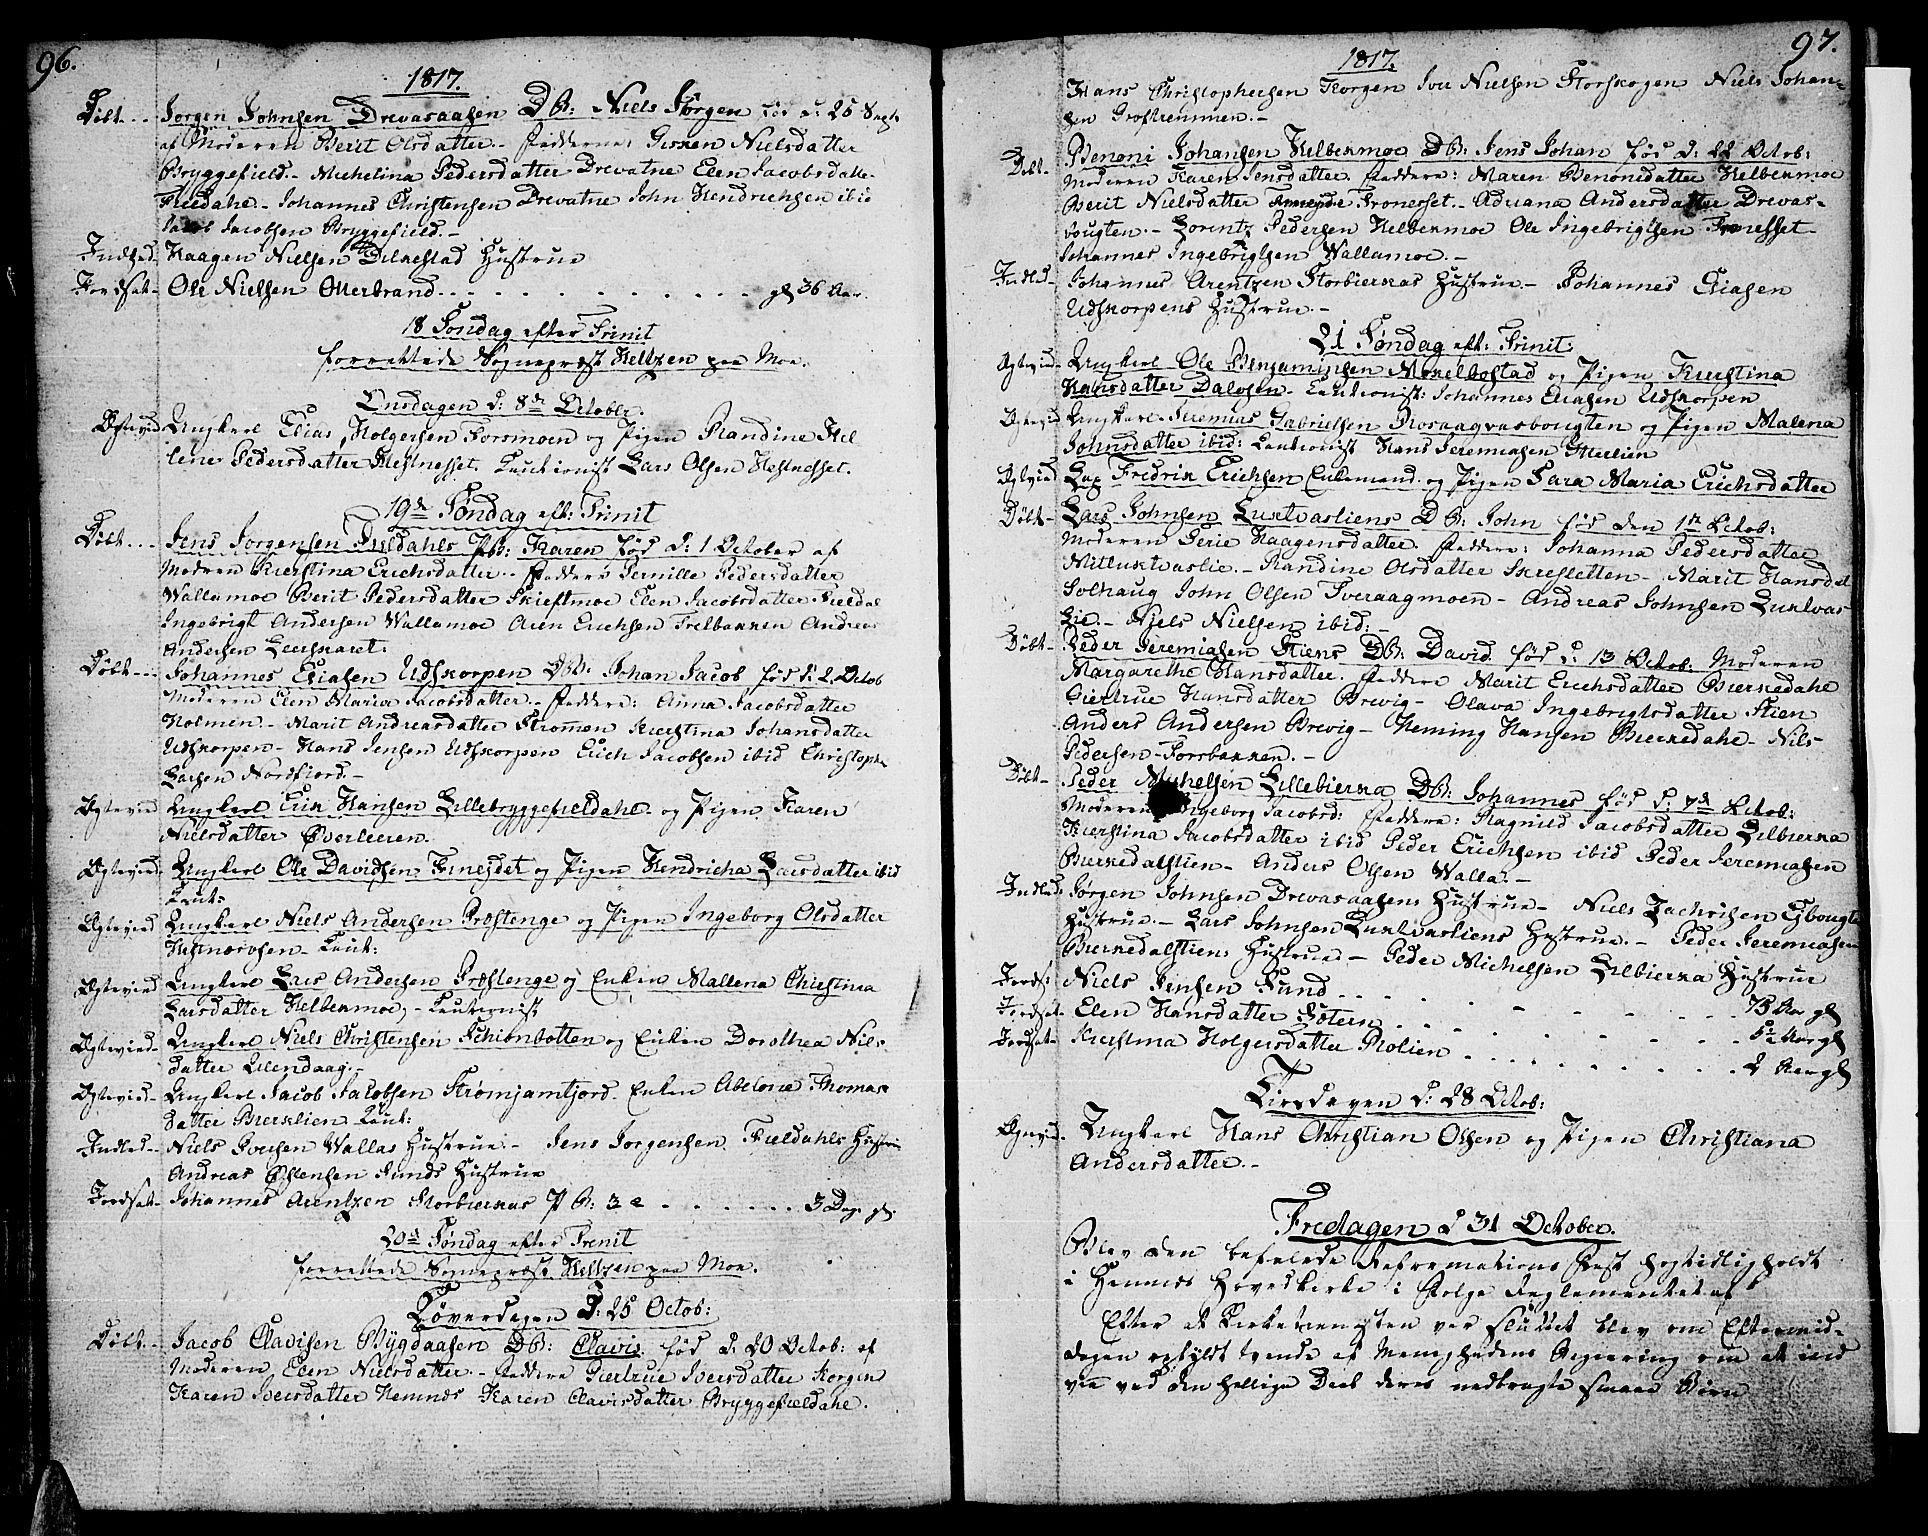 96.
1817.
Døbt - - - Jørgen Johnsen Drevasaasen DB: Niels Jørgen fød d: 25 Sept
af Moderen Berit Olsdatter. - Faddere: Nielsdatter
Bryggefield. - Michelina Pedersdatter Drevatne Elen Jacobsdatte
Fieldahe. - Johannes Christensen Drevatne John Hendrichsen ibid
Jacob Jacobsen Bryggefield. -
Indled - Haagen Nielsen Dilkestad Hustrue
Jordsat - Ole Nielsen Otterbrand - - - - gl 36 Aar.
18 Søndag efter Trinit
forrettede Sognepræst Heltzen paa Moe.
Onsdagen d: 8de October.
Ægtevied Ungkarl Elias Holgersen Forsmoen og Pigen Randine Hel
lene Pedersdatter Hestnesset. Cautionist Lars Olsen Hestnesset.
19de Søndag eft: Trinit
Døbt - - - Jens Jørgensen Fieldahls PB: Karen fød d: 1 October af
Modren Kierstina Erichsdatter. - Faddere Pernille Pedersdatter
Wallamoe Berit Pedersdatter Skieftmoe Elen Jacobsdatter Fieldal
Ingebrigt Andersen Wallamoe Aren Erichsen Trelbakken Andreas
Andersen Leerskaret.
Døbt - - - Johannes Eliasen Udskorpen DB: Johan Jacob fød d: 2 Octob
Moderen Elen Maria Jacobsdatter. - Faddere: Anna Jacobsdatter
Holmen. - Marit Andreasdatter Strømen Kierstina Johansdatter
Udskorpen - Hans Jensen Udskorpen Erich Jacobsen ibid Christoph
Larsen Nordfiord. -
Ægtevied Ungkarl Erik Hansen Lillebryggefieldahl. og Pigen Karen
Nielsdatter Øverleeren.
Ægtevied Ungkarl Ole Davidsen Fineidet og Pigen Hendricha Larsdatter ibid
Caut:
Ægtevied Ungkarl Niels Andersen Præstenge og Pigen Ingeborg Olsdatter
Caut:
Ægtevied Ungkarl Lars Andersen Præstenge og Enken Mallena Christina
Larsdatter Helbekmoe, - Cautionist
Ægtevied - Ungkarl Niels Christensen og Enken Dorothea Nils-
datter Lilendaag. -
Ægtevied - Ungkarl Jacob Jacobsen Strømjamtjord. Enken Abelone Thomas
datter Bierklien Caut:
Indled - Niels Povelsen Wallas Hustrue - Jens Jørgensen Fieldahls Hustrue
Andreas Østensen Funds Hustrue
Jordsat - Johannes Arentzen Storbierkas PB: - - - - 3 Dage gl.
20de Søndag efter Trinit
forrettede Sognepræst Heltzen paa Moe.
Løverdagen d: 25 Octob:
Døbt - - Jacob Clavisen Bygdaasen DB: Clavis fød d. 20 Octob: af
Moderen Elen Nielsdatter. - Faddere Giertrue Iversdatter Korgen
Karen Iversdatter Hemnæs Karen Clavisdatter Bryggefieldahl.
97.
1817.
Hans Christophersen Korgen Iver Nielsen Storskogen Niels Johan-
sen Groftremmen. -
Døbt - Benoni Johansen Helbekmoe DB: Jens Johan fød d: 22 Octob:
Moderen Karen Jensdatter. Faddere: Maren Benonisdatter Helbekmoe
Berit Nielsdatter Fronesset. - Adriana Andersdatter Drevas-
bougten. - Lorentz Pedersen Helbekmoe Ole Ingebrigtsen Fronesset -
Johannes Ingebrigtsen Wallamoe. -
Indled - Johannes Arentzen Storbierkas Hustrue - Johannes Eliasen
Udskorpens Hustrue. -
21 Søndag eft: Trinit:
Ægtevied - Ungkarl Ole Benjaminsen Mekelbostad og Pigen Kierstina
Hansdatter Dalosen - Cautionist: Johannes Eliasen Udskorpen
Ægtevied Ungkarl Jeremias Gabrielsen Rosaagvasbougten og Pigen Malena
Johnsdatter ibid: Cautionist Hans Jeremiasen
Ægtevied Lap Fredrik Erichsen Enkemand og Pigen Sara Maria Erichsdatter
Døbt - Lars Johnsen Luktvasliens DB: John fød den 1te Octob:
Moderen Serie Haagensdatter. Faddere: Johanna Pedersdatter
Mitluktvaslie. - Randine Olsdatter Skresletten - Marit Hansdat
Solhaug John Olsen Tveraagmoen - Andreas Johnsen Luktvas
lie. - Niels Nielsen ibid: -
Døbt - Peder Jeremiasen Stiens DB: David fød d: 13 Octob: Moderen
Margarethe Hansdatter. Faddere Marit Erichsdatter Bierkedahl
Giertrue Hansdatter Brevig - Olava Ingebrigtsdatter Stien
Anders Andersen Brevig - Heming Hansen Bierkedahl - Nils
Pedersen Forsbakken. -
Døbt - Peder Michelsen Lillebierka DB: Johannes fød d: 7de Octob:
Moderen Ingeborg Jacobsd: Faddere: Ragnild Jacobsdatter Lilbierka
Kierstina Jacobsdatter ibid Peder Erichsen ibid Peder Jeremiasen
Bierkedalstien - Anders Olsen Walla. -
Indled: Jørgen Johnsen Drevasaasens Hustrue - Niels Zachrisen
Hustrue. - Lars Johnsen Luktvasliens Hustrue. - Peder Jeremiasen
Bierkedalstiens Hustrue - Peder Michelsen Lilbierka Hustrue
Jords: Niels Jensen Fund - - - - 73 Aar gl
Jordsat - Elen Hansdatter - - - - 52 Aar gl
Jordsat - Kierstina Holgersdatter Rolien - - - - 2 Aar gl
Tirsdagen d: 28 Octob:
Ægtevied. Ungkarl Hans Christian Olsen og Pigen Christiana
Andersdatter. -
Fredagen d 31 October.
Blev den befalede Reformations Fest høgtidligholdt
i Hemnæs Hovedkirke i Følge Reglementet af
Efter at Kirketienesten var sluttet blev om Eftermid-
dagen opfyldt tvende af Menighedens Begiering om at ind
vie ved den hellige Daab deres nedbragte smaae Børn